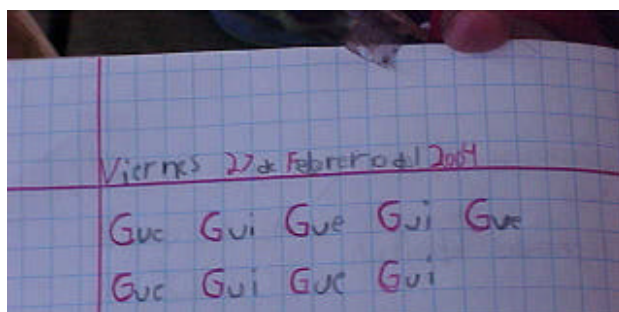 Viernes 27 de Febrero del 2004
Gue Gui Gue Gui Gue
Gue Gui Gue Gui